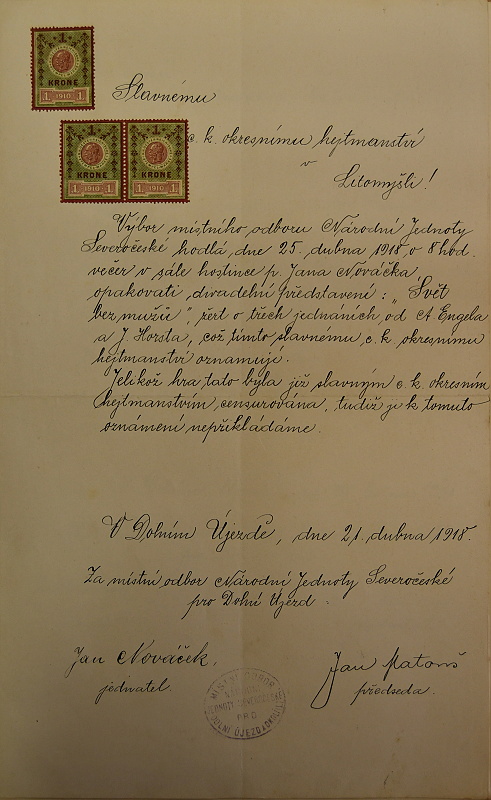 1
KRONE
1 1910 1
Slavnému
1 1
KRONE KRONE
1 1910 1 1 1910 1
c. k. okresnímu hejtmanství
v
Litomyšli!
Výbor místního odboru Národní Jednoty
Severočeské hodlá dne 25. dubna 1918 o 8 hod.
večer v sále hostince p. Jana Nováčka
opakovati divadelní představení: „Svět
bez mužů", žert o třech jednáních od A Engela
a J. Horsta, což tímto slavnému c. k. okresnímu
hejtmanství oznamuje.
Jelikož hra tato byla již slavným c. k. okresním
hejtmanstvím censurována, tudíž ji k tomuto
oznámení nepřikládáme.
V Dolním Újezdě, dne 21. dubna 1918.
Za místní odbor Národní Jednoty Severočeské
pro Dolní Újezd.
Jan Nováček,
jednatel.
Jan Matouš
předseda.
MÍSTNÍ ODBOR
JEDNOTY SEVEROČESKÉ
PRO
DOLNÍ ÚJEZD A OKOLÍ